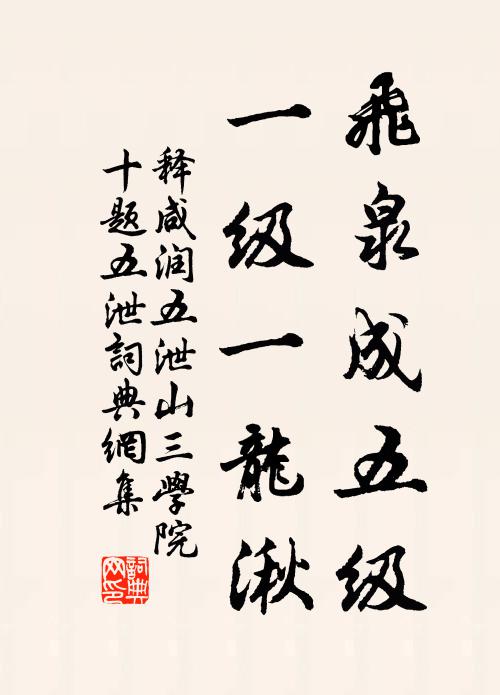 飛泉成五级
一级一龍湫
释咸润五泄山三學院
十题五泄詞典網集
詞典
网印